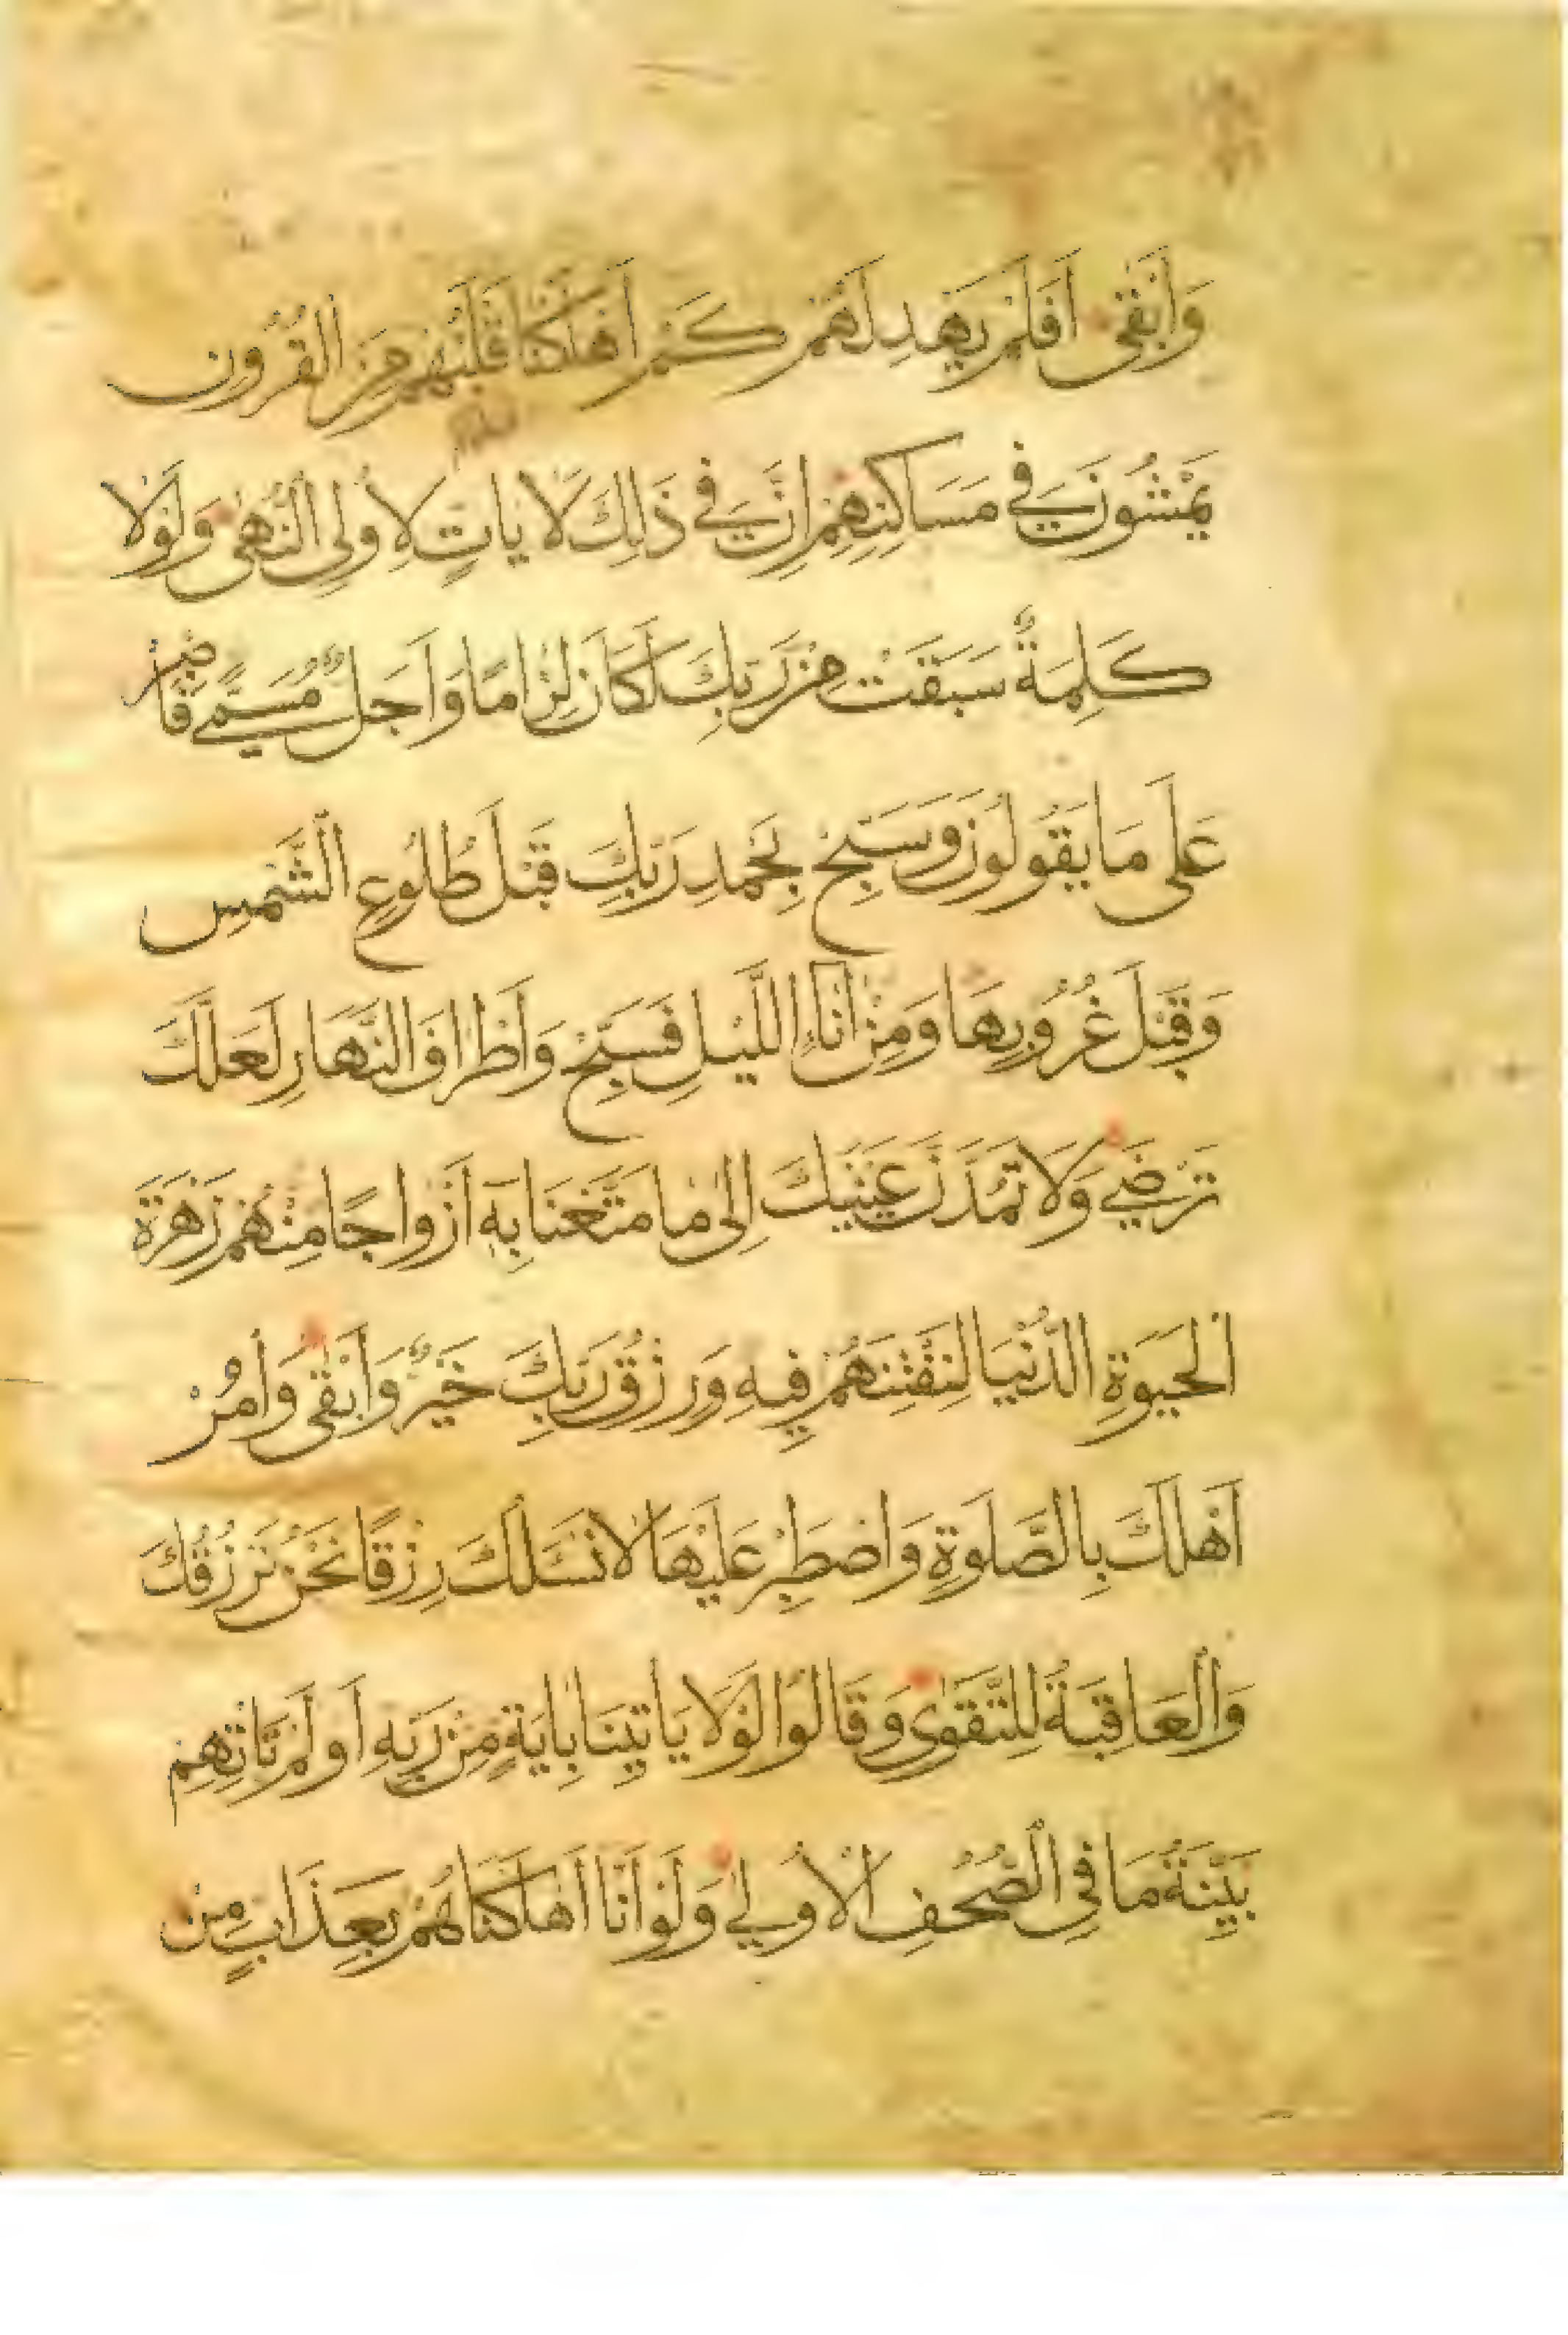 وَاَبْقٰى اَفَلَمْ يَهْدِ لَهُمْ كَمْ اَهْلَكْنَا قَبْلَهُمْ مِنَ الْقُرُونِ
يَمْشُونَ فِي مَسَاكِنِهِمْ اِنَّ فِي ذٰلِكَ لَاٰيَاتٍ لِاُولِي النُّهٰى وَلَوْلَا
كَلِمَةٌ سَبَقَتْ مِنْ رَبِّكَ لَكَانَ لِزَامًا وَاَجَلٌ مُسَمًّى فَاصْبِرْ
عَلٰى مَا يَقُولُونَ وَسَبِّحْ بِحَمْدِ رَبِّكَ قَبْلَ طُلُوعِ الشَّمْسِ
وَقَبْلَ غُرُوبِهَا وَمِنْ اٰنَاءِ اللَّيْلِ فَسَبِّحْ وَاَطْرَافَ النَّهَارِ لَعَلَّكَ
تَرْضٰي وَلَا تَمُدَّنَّ عَيْنَيْكَ اِلٰى مَا مَتَّعْنَا بِهٖ اَزْوَاجًا مِنْهُمْ زَهْرَةَ
الْحَيٰوةِ الدُّنْيَا لِنَفْتِنَهُمْ فِيهِ وَرِزْقُ رَبِّكَ خَيْرٌ وَاَبْقٰى وَأْمُرْ
اَهْلَكَ بِالصَّلٰوةِ وَاصْطَبِرْ عَلَيْهَا لَا نَسْـَٔلُكَ رِزْقًا نَحْنُ نَرْزُقُكَ
وَالْعَاقِبَةُ لِلتَّقْوٰى وَقَالُوا لَوْلَا يَأْتِينَا بِاٰيَةٍ مِنْ رَبِّهِ اَوَلَمْ تَأْتِهِمْ
بَيِّنَةُ مَا فِي الصُّحُفِ الْاُولٰي وَلَوْ اَنَّا اَهْلَكْنَاهُمْ بِعَذَابٍ مِنْ